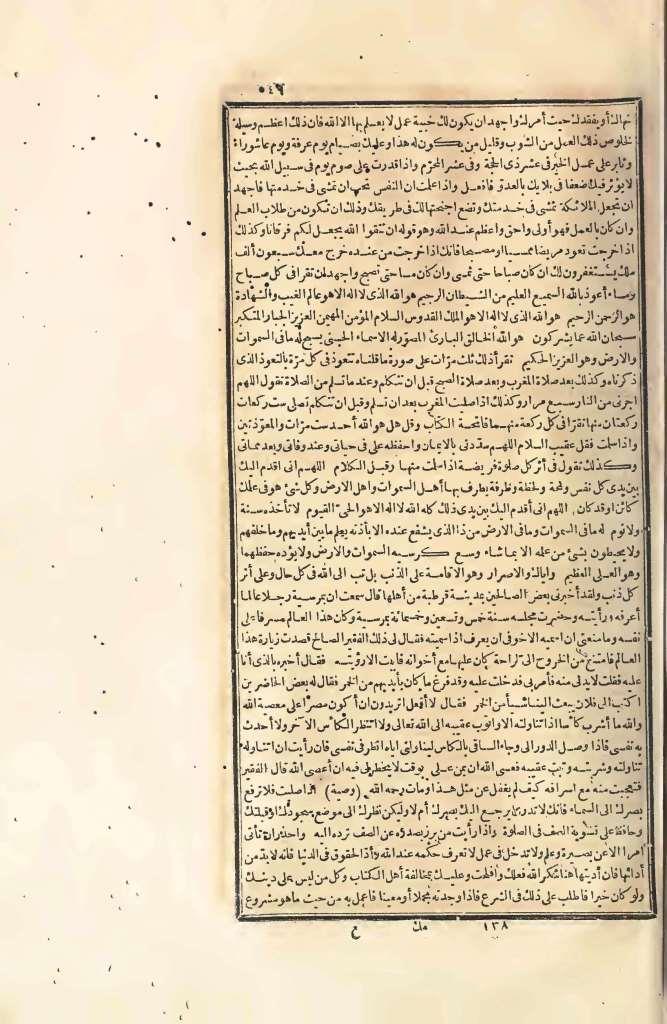 ٥٤٩
نم الك أو يفقدك حيث أمرك واجهد ان يكون لك خبيئة عمل لا يعلم بها الا الله فان ذلك اعظم وسيلة
لخلوص ذلك العمل من الشوب وقليل من يكون له هذا وعليك بصيام يوم عرفة ويوم عاشوراء
وثابر على عمل الخير فى عشر ذى الحجة وفى عشر المحرّم واذا قدرت على صوم يوم فى سبيل الله بحيث
لا يؤثر فيك ضعفا فى بلا يك بالعدوّ فافعل واذا علمت ان النفس تحب ان تمشى فى خدمتها فاجهد
ان تجعل الملائكة تمشى فى خدمتك وتضع اجنحتها لك فى طريقك وذلك ان تكون من طلاب العلم
وان كان بالعمل فهو أولى واحق واعظم عند الله وهو قوله ان تتقوا الله يجعل لكم فرقانا وكذلك
اذا خرجت تعود مريضا ممسيا ومصبحا فانك اذا خرجت من عنده خرج معك سبعون ألف
ملك يستغفرون لك ان كان صباحا حتى تمسى وان كان مساء حتى تصبح واجهد ان تقرا فى كل صباح
ومساء أعوذ بالله السميع العليم من الشيطان الرجيم هو الله الذى لا اله الا هو عالم الغيب والشهادة
هو الرحمن الرحيم هو الله الذى لا اله الا هو الملك القدوس السلام المؤمن المهيمن العزيز الجبار المتكبر
سبحان الله عما يشركون هو الله الخالق البارئ المصوّر له الاسماء الحسنى يسبح له ما فى السموات
والارض وهو العزيز الحكيم تقرأ ذلك ثلث مرّات على صورة ما قلناه تتعوذ فى كل مرّة بالتعوذ الذى
ذكرناه وكذلك بعد صلاة المغرب وبعد صلاة الصبح قبل ان تتكلم وعند ما تسلم من الصلاة تقول اللهم
اجرنى من النار سبع مرار وكذلك اذا صليت المغرب بعد ان تسلم وقبل ان تتكلم تصلى ست ركعات
ركعتان منها تقرا فى كل ركعة منهما فاتحة الكتاب وقل هو الله أحد ست مرّات والمعوّذتين
واذا سلمت فقل عقيب السلام اللهم سدّدنى بالايمان واحفظه على فى حياتى وعند وفاتى وبعد مماتى
وكذلك تقول فى أثر كل صلوة فريضة اذا سلمت منها وقبل الكلام اللهم انى اقدم اليك
بين يدى كل نفس ولمحة ولحظة وطرفة يطرف بها أهل السموات وأهل الارض وكل شئ هو فى علمك
كائن او قد كان اللهم انى أقدم اليك بين يدى ذلك كله الله لا اله الا هو الحىّ القيوم لا تأخذه سنة
ولا نوم له ما فى السموات وما فى الارض من ذا الذى يشفع عنده الا بأذنه يعلم ما بين أيديهم وما خلفهم
ولا يحيطون بشئ من علمه الا بما شاء وسع كرسيه السموات والارض ولا يؤده حفظهما
وهو العلى العظيم واياك والاصرار وهو الاقامة على الذنب بل تب الى الله فى كل حال وعلى أثر
كل ذنب ولقد أخبرنى بعض الصالحين بمدينة قرطبة من أهلها قال سمعت ان بمرسية رجلا عالما
أعرفه ورأيته وحضرت مجلسه سنة خمس وتسعين وخمسمائة بمرسية وكان هذا العالم مسرفا على
نفسه وما منعنى ان اسميه الا خوفى ان يعرف اذا سميته فقال لى ذلك الفقير الصالح قصدت زيارة هذا
العالم فامتنع من الخروج الى لراحة كان عليها مع أخوانه فابيت الا رؤيته فقال أخبره بالذى أنا
عليه فقلت لابد لى منه فأمر بى فدخلت عليه وقد فرغ ما كان بأيديهم من الخمر فقال له بعض الحاضرين
اكتب الى فلان يبعث الينا شيأ من الخمر فقال لا أفعل اتريدون ان أكون مصرّا على معصية الله
والله ما أشرب كأسا اذا تناولته الا واتوب عقيبه الى الله تعالى ولا انتظر الكأس الآخر ولا أحدث
به نفسى فاذا وصل الدور الى وجاء الساقى بالكاس ليناولنى اياه انظر فى نفسى فان رأيت ان اتناوله
تناولته وشربته وتبت عقيبه فعسى الله ان يمن على بوقت لا يخطر لى فيه ان أعصى الله قال الفقير
فتعجبت منه مع اسرافه كيف لم يغفل عن مثل هذا ومات رحمه الله (وصية) اذا صليت فلا ترفع
بصرك الى السماء فانك لا تدرى يرجع اليك بصرك أم لا وليكن نظرك الى موضع سجودك او قبلتك
وحافظ على تسوية الصف فى الصلوة واذا رأيت من برز بصدره عن الصف ترده اليه واحذر ان تأتى
أمرا الا عن بصيرة وعلم ولا تدخل فى عمل لا تعرف حكمه عند الله وأدّ الحقوق فى الدنيا فانه لابدّ من
أدائها فان أديتها هنا شكر الله فعلك وافلحت وعليك بمخالفة أهل الكتاب وكل من ليس على دينك
ولو كان خيرا فاطلب على ذلك فى الشرع فاذا وجدته مجملا أو معينا فاعمل به من حيث ما هو مشروع
١٣٨ مك ع